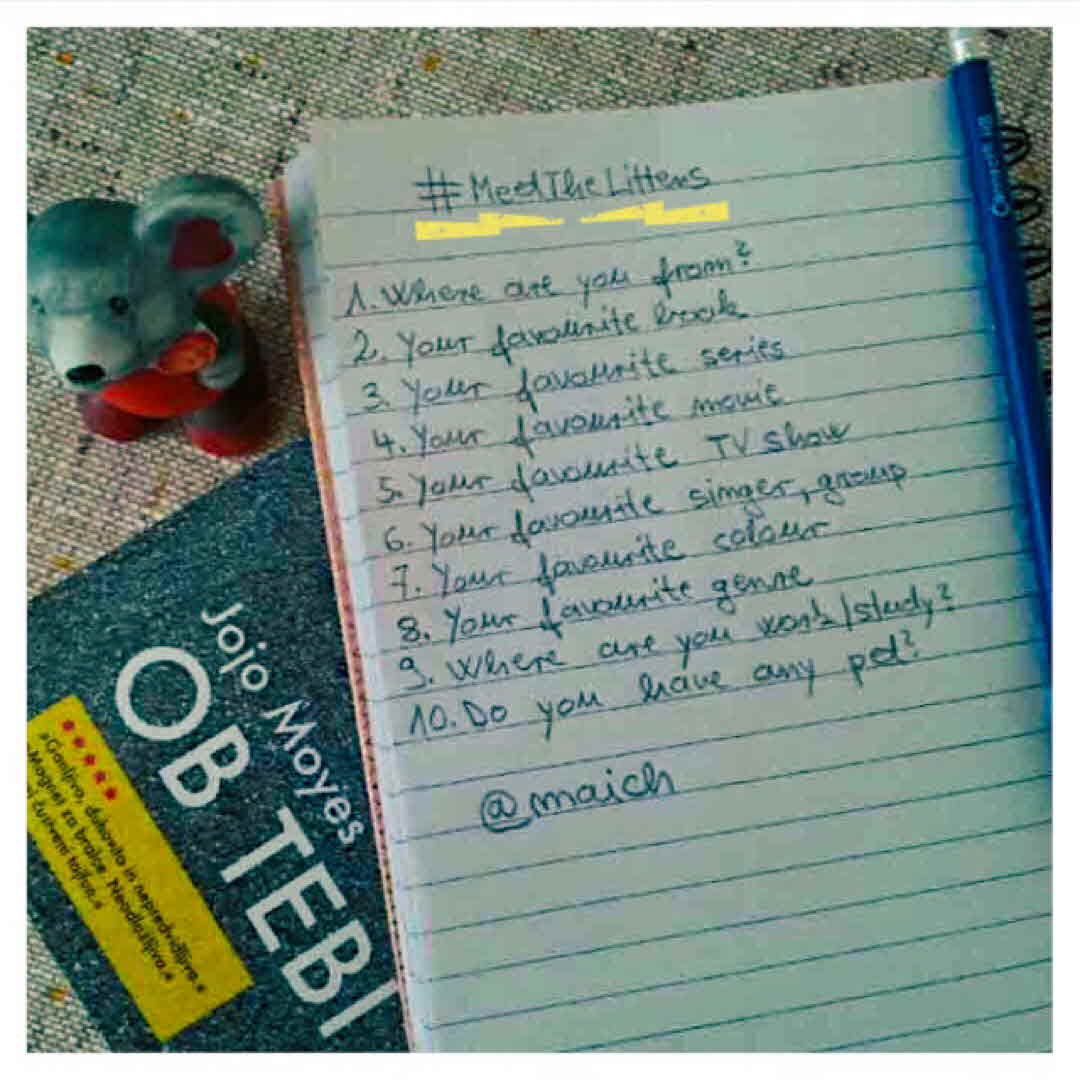 #MeetTheLittens
1. Where are you from?
2. Your favourite book
3. Your favourite series
4. Your favourite movie
5. Your favourite TV show
6. Your favourite singer, group
7. Your favourite colour
8. Your favourite genre
9. Where are you work/study?
10. Do you have any pet?
@maich
Jojo Moyes
OB TEBI
»Ganljivo, duhovito in nepredvidljivo.«
»Magnet za bralce. Neodložljivo.«